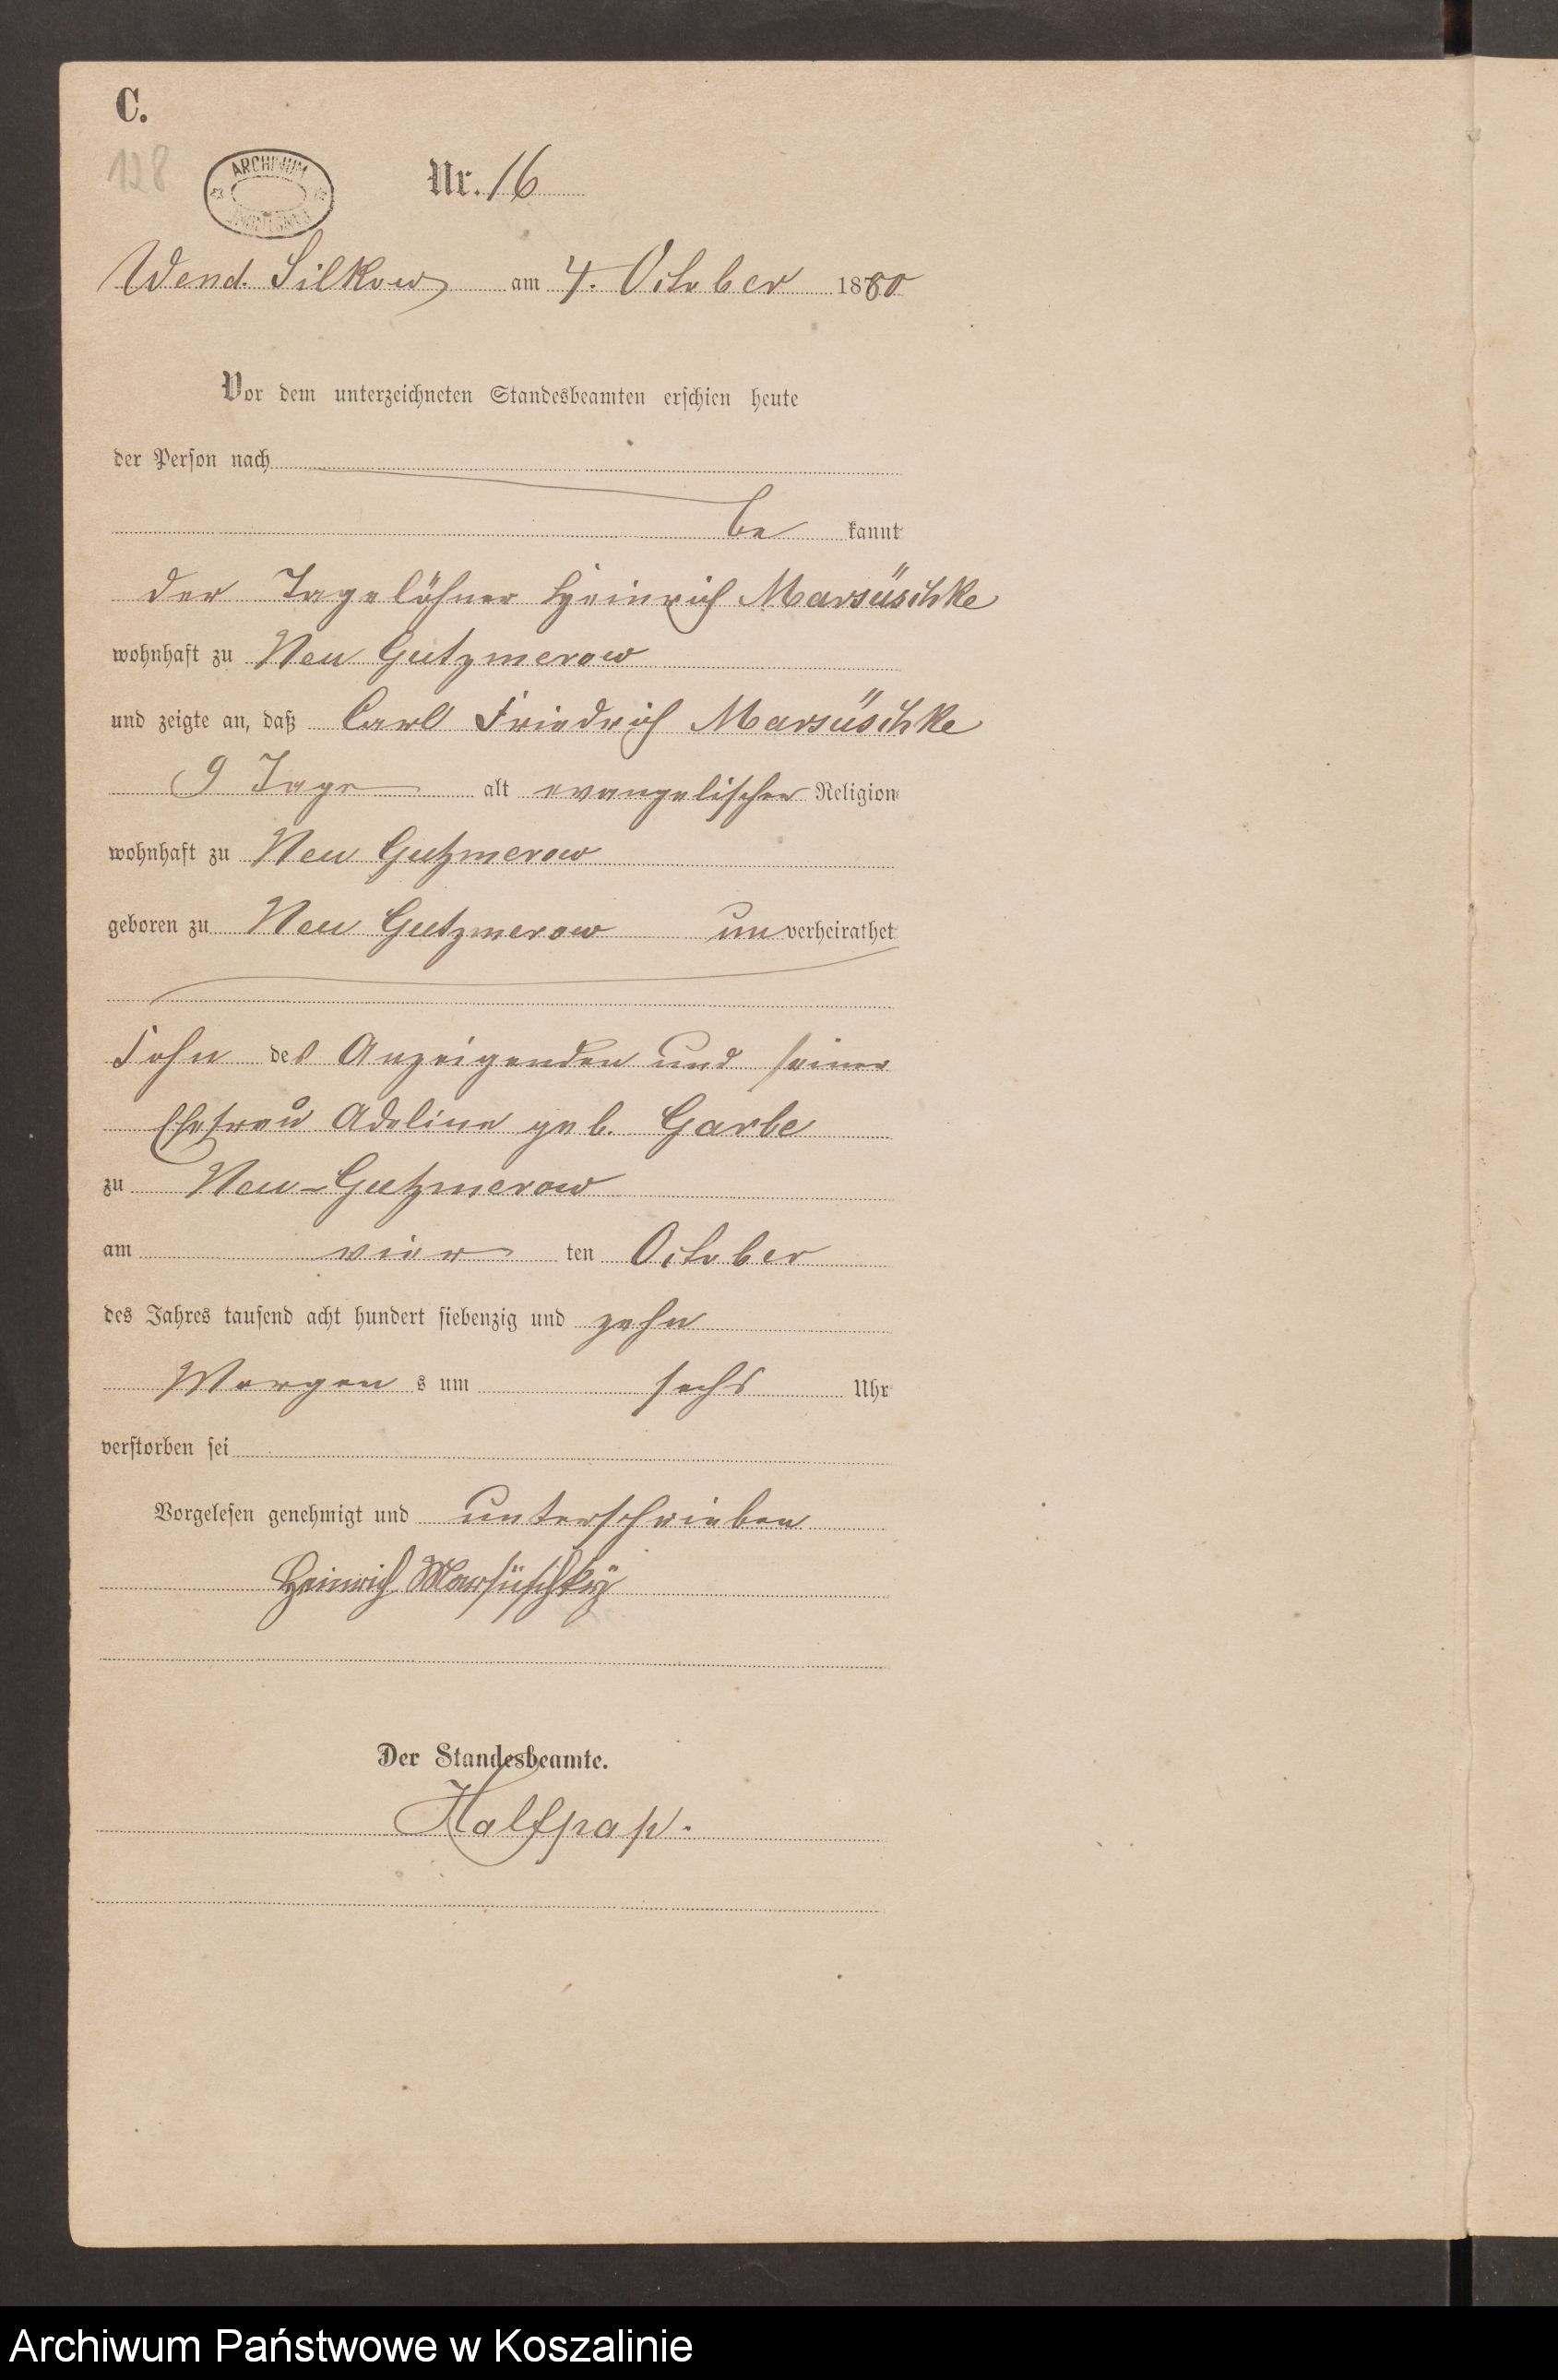 C.
128
ARCHIWUM
Nr. 16
Wend. Silkow am 4. October 1880
Vor dem unterzeichneten Standesbeamten erschien heute
der Person nach
be kannt
der Tagelöhner Heinrich Marsüschke
wohnhaft zu Neu Gutzmerow
und zeigte an, daß Carl Friedrich Marsüschke
9 Tage alt evangelischer Religion
wohnhaft zu Neu Gutzmerow
geboren zu Neu Gutzmerow un verheirathet
Sohn des Anzeigenden und seiner
Ehefrau Adeline geb. Garbe
zu Neu-Gutzmerow
am vier ten October
des Jahres tausend acht hundert siebenzig und zehn
Morgen s um sechs Uhr
verstorben sei
Vorgelesen genehmigt und unterschrieben
Heinrich Marsüschky
Der Standesbeamte.
Halfpap.
Archiwum Państwowe w Koszalinie